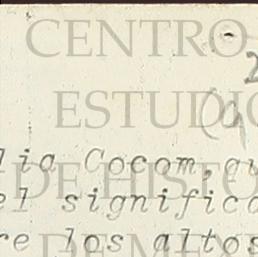 CENTRO
ESTUDIO
lia Cocom, qu
DE HISTO
el significa
re los altos
DE MEX